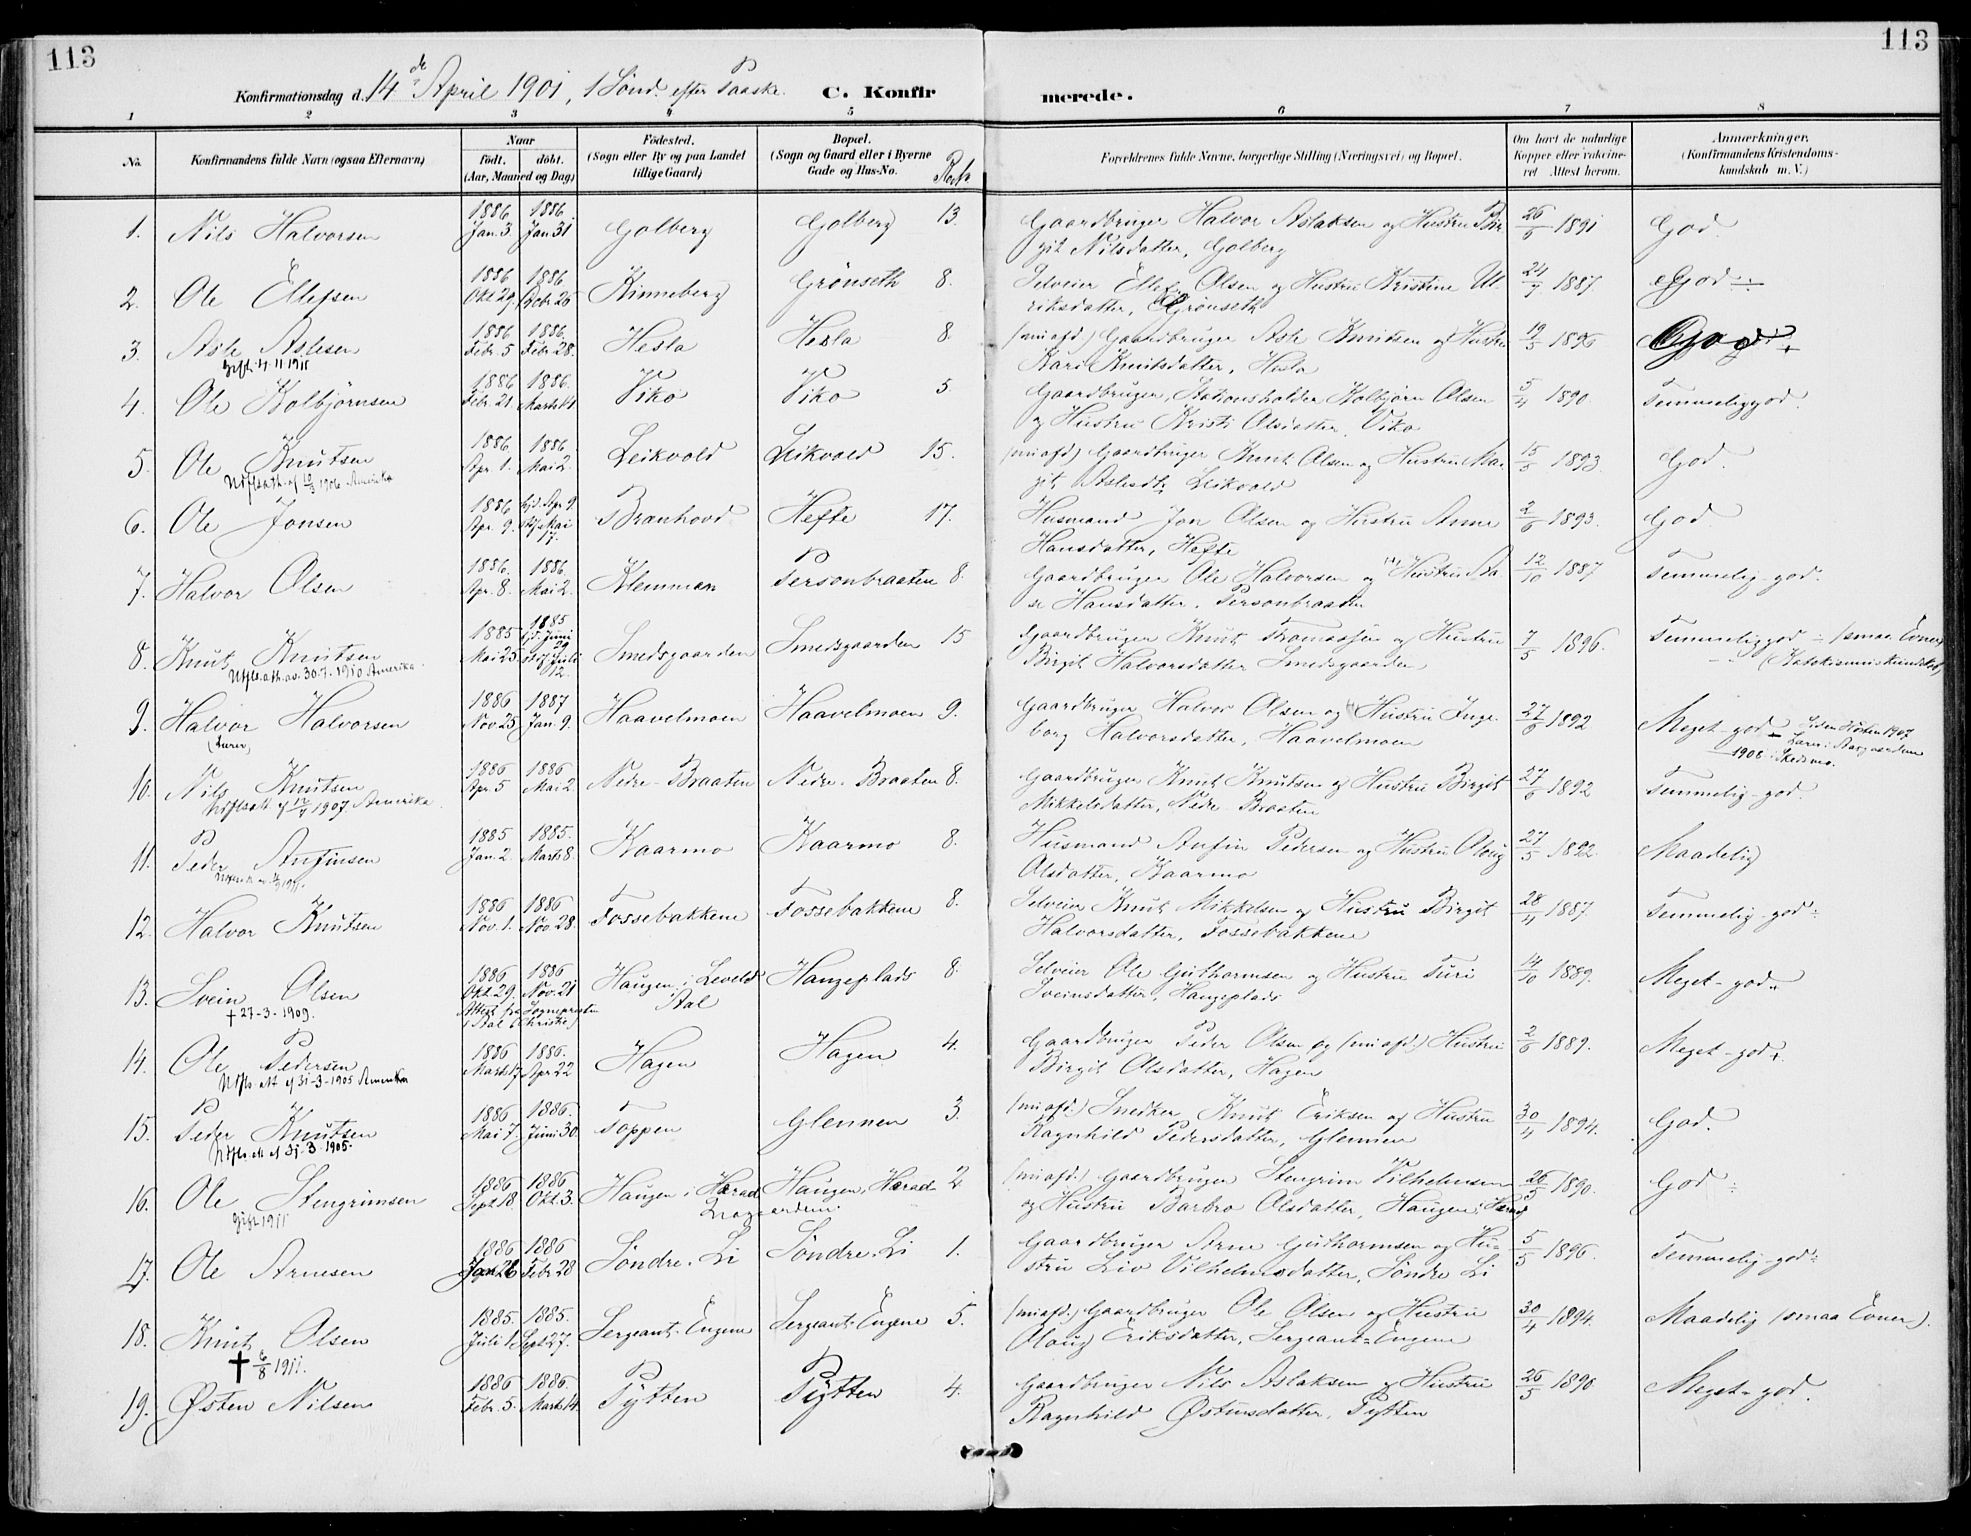 113
113
Konfirmationsdag d. 14de April 1901, 1 Sönd. efter Paaske.
C. Konfir merede.
1 2 3 4 5 6 7 8
No. Konfirmandens fulde Navn (ogsaa Efternavn) Naar födt. döbt. (Aar, Maaned og Dag) Födested. (Sogn eller By og paa Landet tillige Gaard) Bopæl. (Sogn og Gaard eller i Byerne Gade og Hus-No. Forældrenes fulde Navne, borgerlige Stilling (Næringsvei) og Bopæl. Om havt de naturlige Kopper eller vakcineret Attest herom. Anmærkninger. (Konfirmandens Kristendomskundskab m. V.)
1. Nils Halvorsen 1886 Jan. 3. 1886 Jan 31 Golberg Golberg 13. Gaardbruger Halvor Aslaksen og Hustru Bir
git Nilsdatter, Golberg 26/6 1891 God.
2. Ole Ellefsen 1886 Okt 29. 1886 Kinneberg Grönseth 8. Selveier Ellef Olsen og Hustru Kristine Ul
riksdatter, Grönseth 24/7 1887. God ÷
3. Asle Aslesen 1886 Febr. 5 1886. Febr 28. Hesla Hesla 8. (nu afd) Gaardbruger Asle Knutsen og Hustru
Gift 4-11 1911 Kari Knutsdatter, Hesla 19/5 God
4. Ole Kolbjörnsen 1886 Febr. 21. 1886. Marts 14 Viko Viko 5. Gaardbruger, Stationsholder Kolbjörn Olsen
og Hustru Kristi Olsdatter, Viko 5/4 1890. Temmeliggod.
5. Ole Knutsen 1886 Apr. 1. 1886. Mai 2. Leikvold Leikvold 15. (nu afd) Gaardbruger Knut Olsen og Hustru Mar
Utflsath. af 10/3 1906 Amerika git Aslesdt, Leikvold 15/5 1893. God.
6. Ole Jonsen 1886 Apr. 9. hjd. Apr 9. stf. Mai 17. Branhovd Hefte 17. Husmand Jon Olsen og Hustru Anne
Hansdatter, Hefte 2/6 1893. God.
7. Halvor Olsen 1886. Apr. 8. 1886. Mai 2. Klemman Personbraaten 8. Gaardbruger Ole Halvorsen og Hustru Aa
se Hansdatter, Personbraaten 12/10 1887 Temmelig-god.
8. Knut Knutsen 1885 Mai 25 1885 hjd. Juni 29 stf. Juli 12. Smedsgaarden Smedsgaarden 15 Gaardbruger Knut Tromassen og Hustru
Utfls.ath. av. 30.7.1910 Amerika. Birgit Halvorsdatter Smedsgaarden 7/5 1896. Temmeliggod ÷ (smaa Evner)
9. Halvor Halvorsen 1886 Nov 25 1887 Jan. 9. Haavelmoen Haavelmoen 9. Gaardbruger Halvor Olsen og Hustru Inge
borg Halvorsdatter, Haavelmoen 27/6 1892 Meget-god
10. Nils Knutsen 1886 Apr. 5 1886 Mai 2 Nedre-Braaten Nedre-Braaten 8. Gaardbruger Knut Knutsen og Hustru Birgit
Utflsatt af 12/4 1907 Amerika. Mikkelsdatter, Nedre-Braaten 27/6 1892 Temmelig-god.
11. Peder Anfinsen 1885 Jan. 2. 1885. Marts 8. Kaarmo Kaarmo 8. Husmand Anfin Pedersen og Hustru Oloug
Olsdatter, Kaarmo 27/5 1892. Maadelig
12. Halvor Knutsen 1886 Nov. 1. 1886 Nov. 28. Fossebakkene Fossebakkene 8. Selveier Knut Mikkelsen og Hustru Birgit
Halvorsdatter, Fossebakkene 28/4 1887. Temmelig-god÷
13. Svein Olsen 1886 Okt. 29. 1886 Nov. 21 Haugen i Leveld Aal Haugeplads 8. Selveier Ole Guthormsen og Hustru Turi
† 27-3-1909. Attest fra Sognepresten i Aal (Christie) Sveinsdatter, Haugeplads 14/10 1889. Meget-god÷
14. Ole Pedersen 1886 Marts 17 1886. Apr 22 Hagen Hagen 4. Gaardbruger Peder Olsen og (nu afd.) Hustru
Utfls. Att af 31-3-1905 Amerika Birgit Olsdatter, Hagen 2/6 1889. Meget-god÷
15. Peder Knutsen 1886 Mai 7. 1886. Juni 30. Toppen Glennen 3. (nu afd.) Snedker Knut Eriksen og Hustru
Utfls. att af 31-3-1905. Ragnhild Pedersdatter, Glennen 30/4 1894. God.
16. Ole Stengrimsen 1886 Sept 18. 1886 Okt. 3. Haugen i Herad Haugen, Herad 2 (nu afd.) Gaardbruger Stengrim Vilhelmsen
Gift 1911 og Hustru Barbro Olsdatter, Haugen i Herad 26/5 1890. God ÷
17. Ole Arnesen 1886 Jan 26 1886 Febr 28 Söndre-Li Söndre-Li 1. Gaardbruger Arne Guthormsen og Hu-
stru Liv Vilhelmsdatter, Söndre Li 5/5 1896. Temmelig-god÷
18. Knut Olsen 1885. Juli 1. 1885. Sept 27. Sergeant-Eugene Sergeant-Eugene 5. (nu afd.) Gaardbruger Ole Olsen og Hustru
† 6/8 1911. Oloug Eriksdatter, Sergeant-Eugene 30/4 1894. Maadelig (smaa Evner).
19. Østen Nilsen 1886 Febr. 5. 1886. Marts 14. Pytten Pytten 4. Gaardbruger Nils Aslaksen og Hustru
Ragnhild Østensdatter, Pytten 26/5 1890 Meget-god.